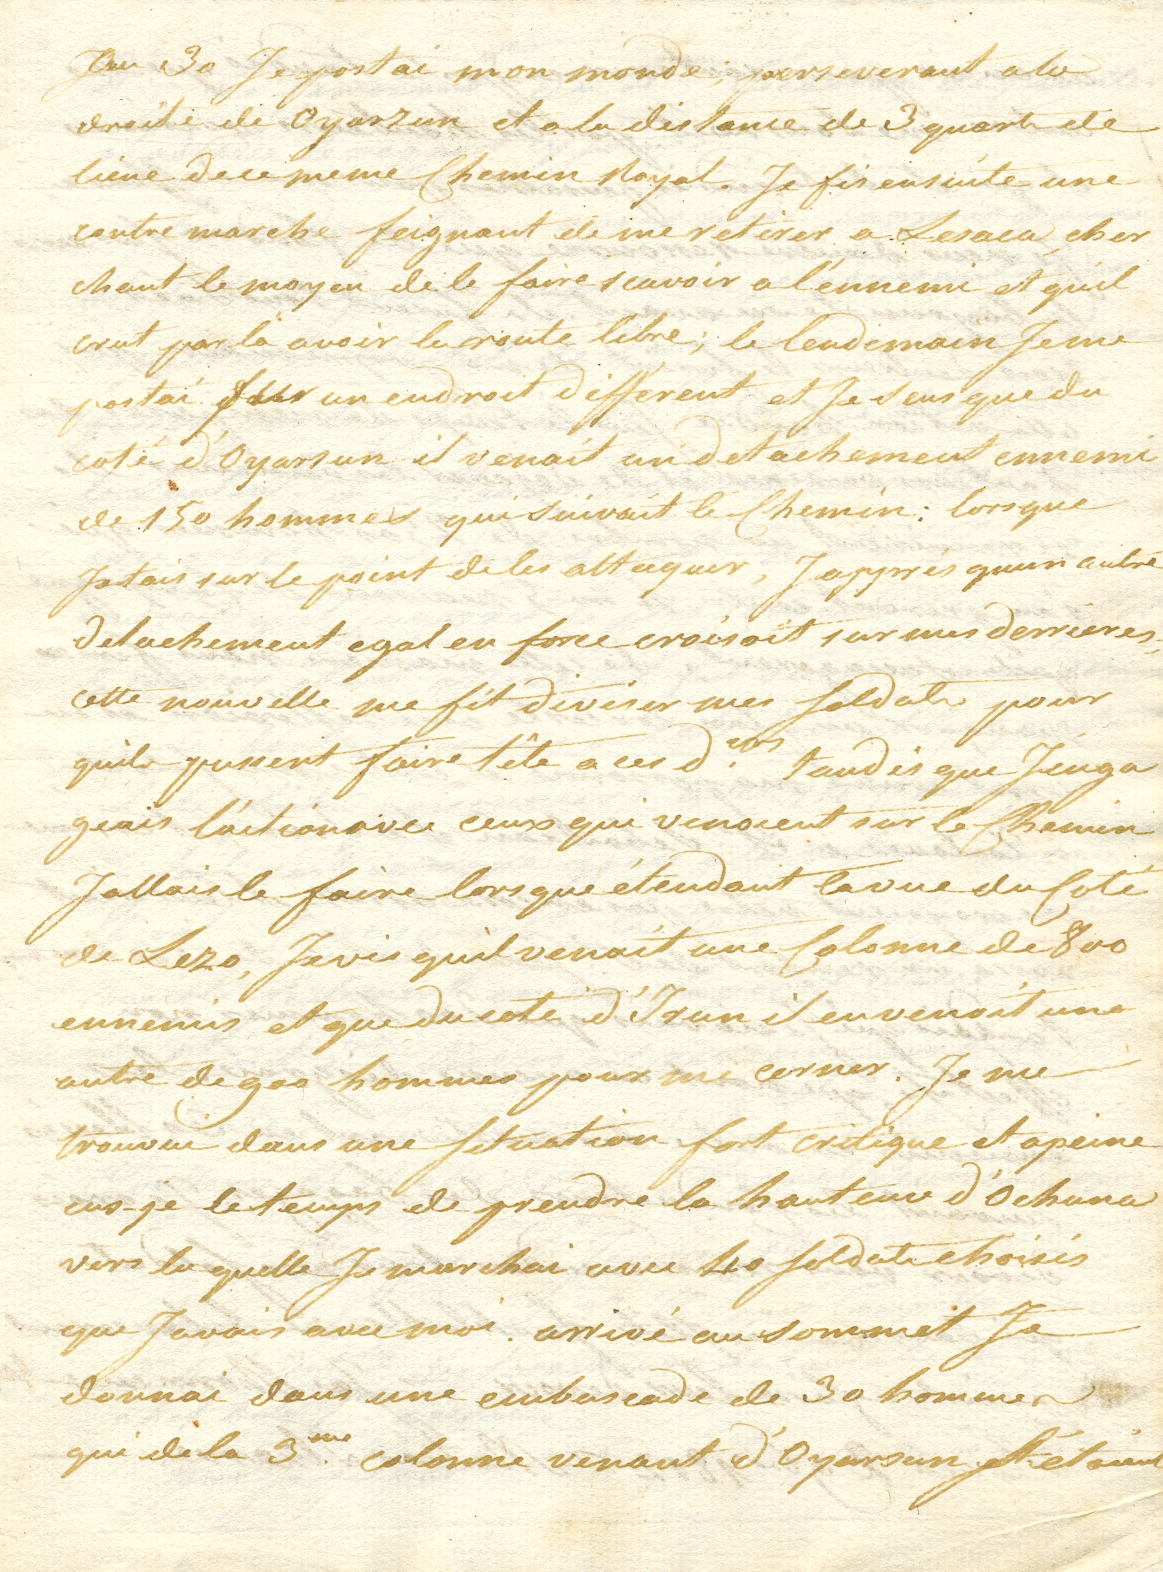 Du 30 Je postai mon monde; perseverant a la
droite de Oyarzun et a la distance de 3 quart de
lieue de ce meme Chemin Royal. Je fis ensuite une
contre marche feignant de me retirer a Lesaca, cher
chant le moyen de le faire scavoir a l'énnemi et quil
crut par là avoir la route libre; le lendemain Je me
postai sur un endroit différent et Je sus que du
coté d'Oyarsun il venait un detachement ennemi
de 150 hommes qui suivait le Chemin: lorsque
Jetais sur le point de les attaquer, J'appris quun autre
detachement egal en force croisoit sur mes derrieres,
cette nouvelle me fit diviser mes soldats pour
quils pussent faire tête a ces d.ers tandis que J'enga
geais l'action avec ceux qui venoient sur le Chemin
Jallais le faire lorsque étendant la vue du Coté
de Lezo, Je vis quil venait une Colonne de 800
ennemis et que du coté d'Irun il en venoit une
autre de 900 hommes pour me cerner. Je me
trouvai dans une situation fort critique et a peine
eus-je le temps de prendre la hauteur d'Ochuna
vers la quelle Je marchai avec 40 soldats choisis
que Javais avec moi. arrivé au sommet Je
donnai dans une embuscade de 30 hommes
qui de la 3.me colonne venant d'Oyarsun s'étaient